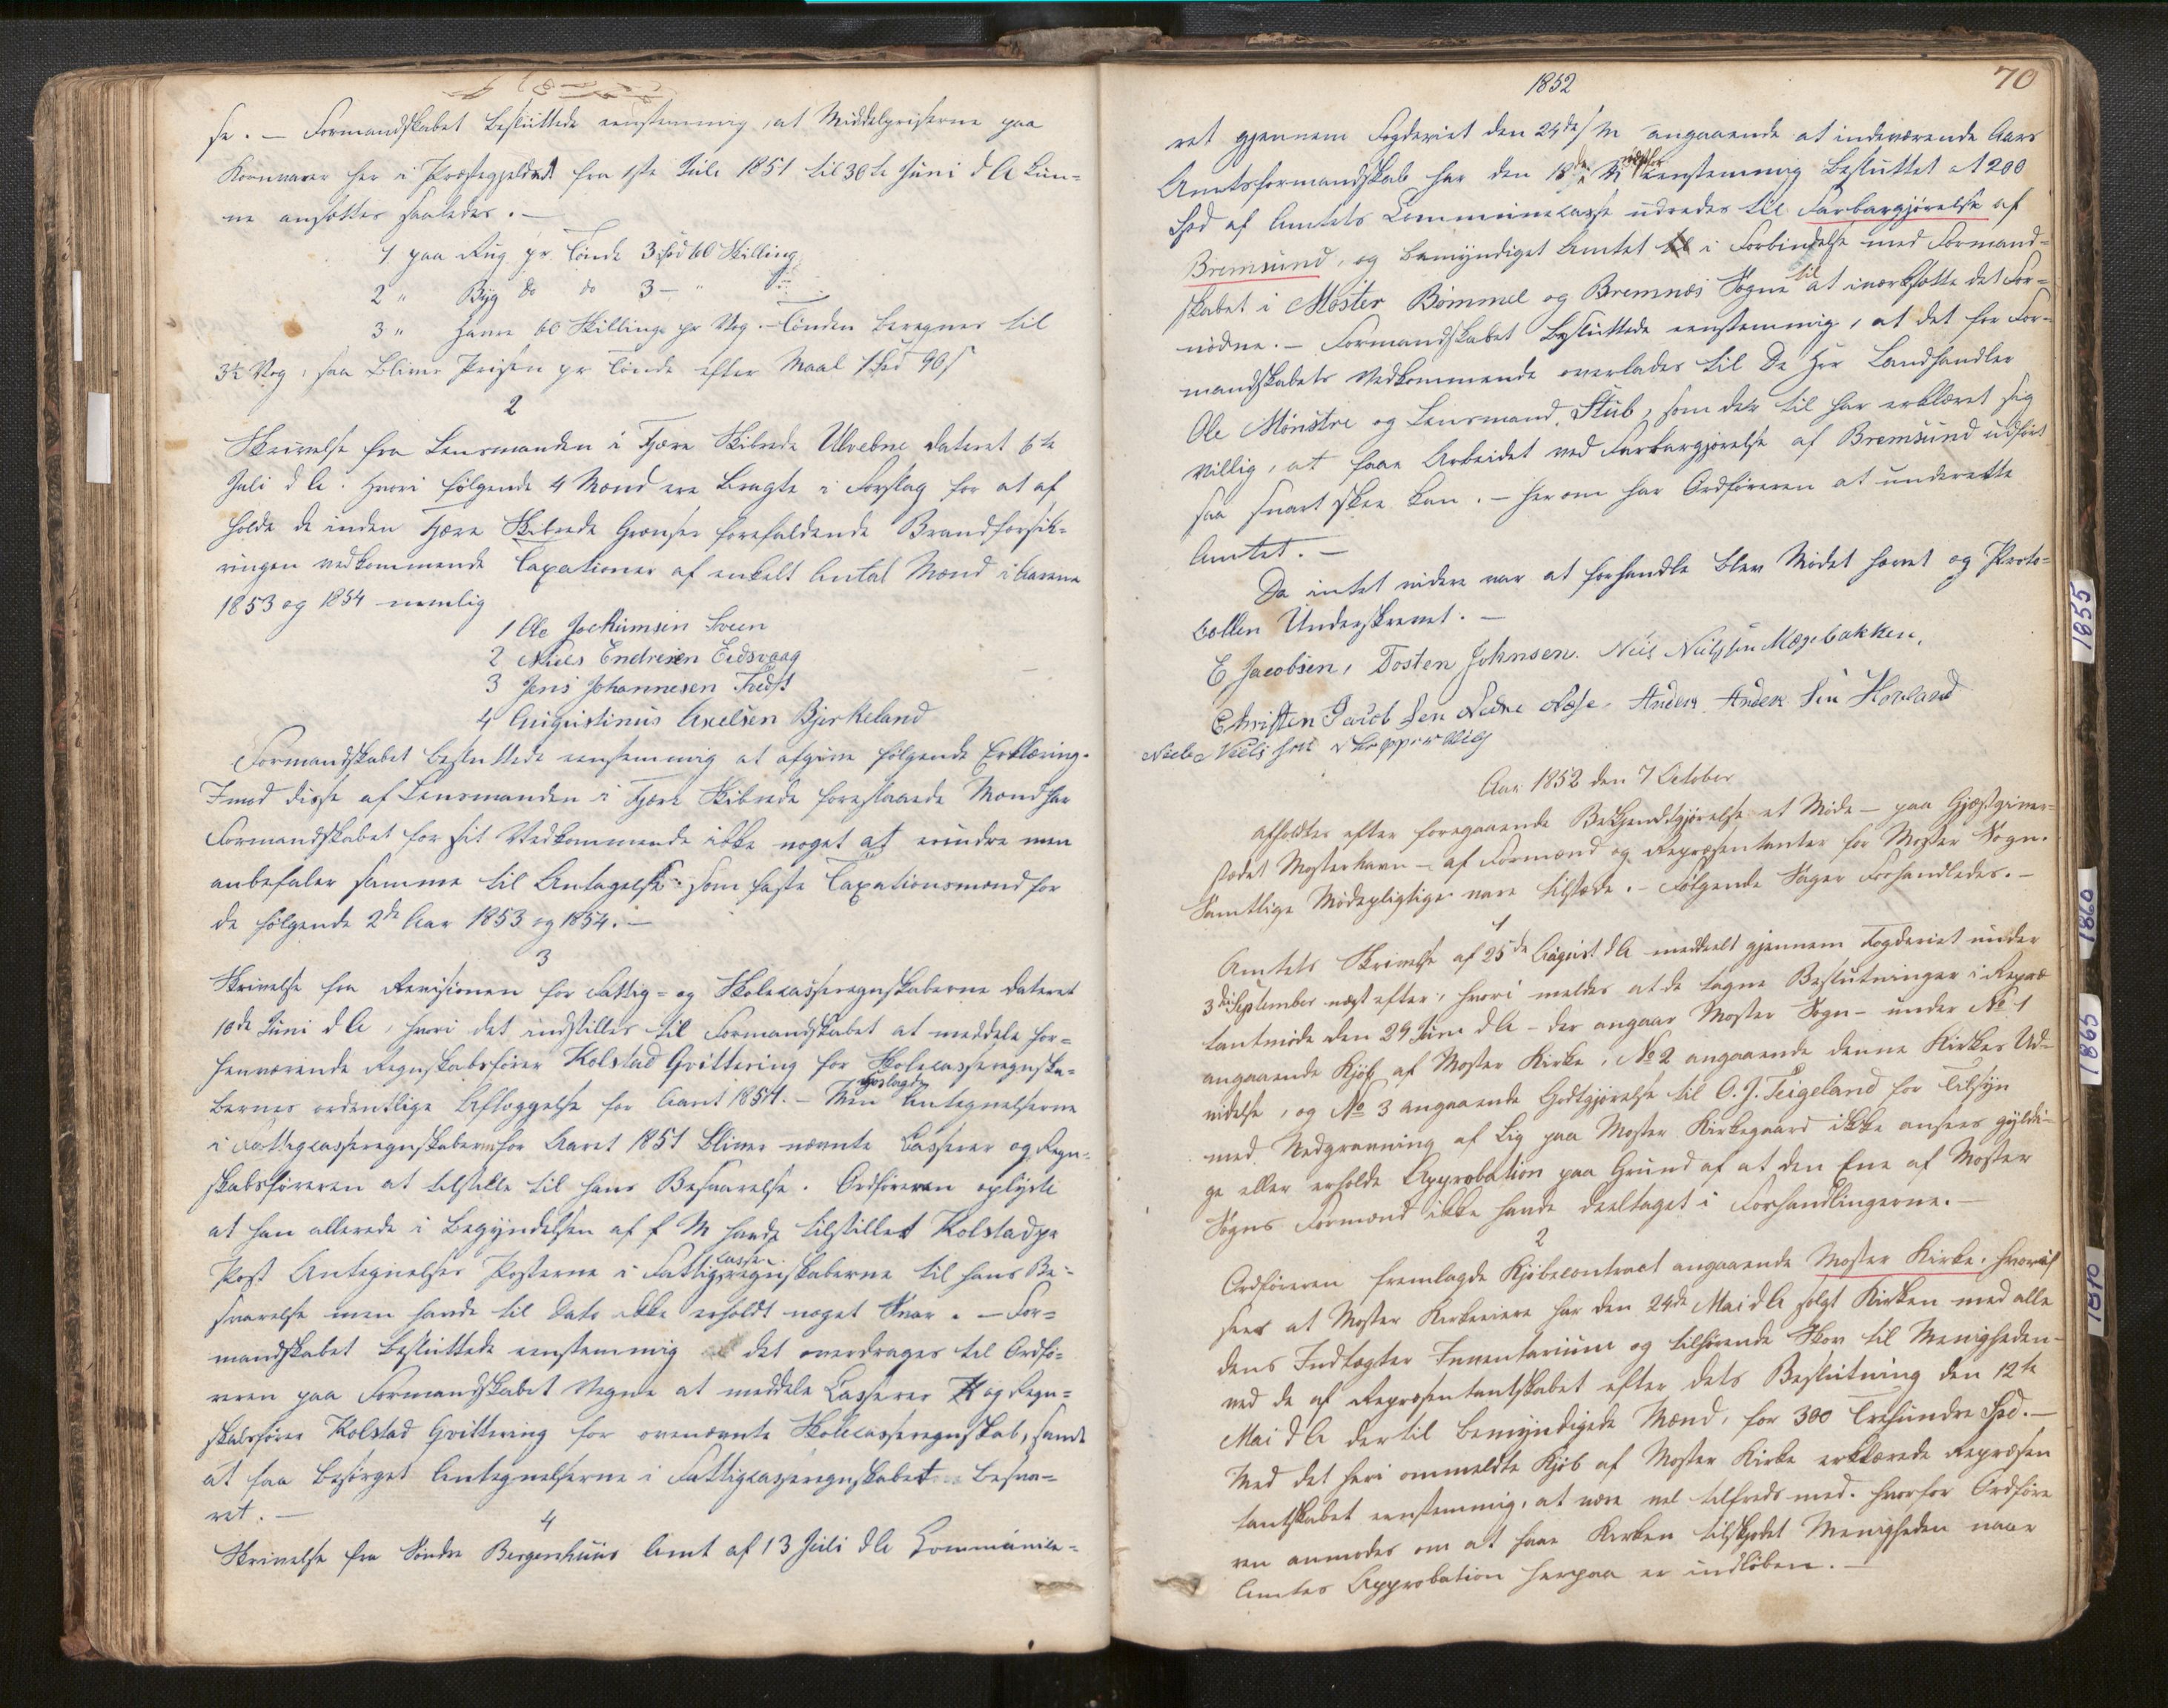 se. — Formandskabet besluttede eenstemmig, at Middelpriserne paa
Kornvarer her i Præstegjeldet fra 1ste Juli 1851 til 30te Juni d A kun-
ne ansættes saaledes. —
1 paa Rug pr Tønde 3 Spd 60 Skilling
2 " Byg do do 3 — "
3 " Havre 60 Skilling pr Vog. — Tønden beregnes til
3½ Vog, saa bliver Prisen pr Tønde efter Maal 1 Spd 90 s
2
Skrivelse fra Lensmanden i Fjære Skibrede Ulvebne dateret 6te
Juli d A. hvori følgende 4 Mænd ere bragte i Forslag for at af
holde de inden Fjære Skibrede Grændser forefaldende Brandforsik-
ringen vedkommende Taxationer af enkelt Antal Mænd i Aarene
1853 og 1854 nemlig
1 Ole Jockumsen Sveen
2 Niels Endresen Eidsvaag
3 Jens Johannesen
4 Augustinus Axelsen Bjerkeland
Formandskabet besluttede eenstemmig at afgive følgende Erklæring.
Imod disse af Lensmanden i Fjære Skibrede foreslaaede Mænd har
Formandskabet for sit Vedkommende ikke noget at erindre men
anbefaler samme til Antagelse som faste Taxationsmænd for
de følgende 2de Aar 1853 og 1854. —
3
Skrivelse fra Revisionen for Fattig- og Skolecasseregnskaberne dateret
10de Juni d A, hvori det indstilles til Formandskabet at meddele for-
henværende Regnskabsfører Kolstad Qvittering for Skolecasseregnska-
bernes ordentlige Aflæggelse for Aaret 1851. — Men Antegnelserne
i Fattigcasseregnskaberne for Aaret 1851 bliver nævnte Casserer og Regn-
skabsføreren at tilstille til hans Besvarelse. Ordføreren oplyste
at han allerede i Begyndelsen af f M havde tilstillet Kolstad pr
Post Antegnelses Posterne i Fattigcasseregnskaberne til hans Be-
svarelse men havde til Dato ikke erholdt noget Svar. — For-
mandskabet besluttede eenstemmig det overdrages til Ordfø-
reren paa Formandskabet Vegne at meddele Casserer og Regn-
skabsfører Kolstad Qvittering for ovennævnte Skolecasseregnskab, samt
at faa besørget Antegnelserne i Fattigcasseregnskabet besva-
ret. —
4
Skrivelse fra Søndre Bergenhuus Amt af 13 Juli d A Communice-
1852
70
ret gjennem Fogderiet den 24de / M angaaende at indeværende Aars
Amtsformandskab har den 18de eenstemmig besluttet at 200
Spd af Amtets Communecasse udredes til Farbargjørelse af
Bremsund, og bemyndiget Amtet i Forbindelse med Formand-
skabet i Moster Bømmel og Bremnes Sogne til at iværksætte det For-
nødne. — Formandskabet besluttede eenstemmig, at det for For-
mandskabets Vedkommende overlades til De Hrr Landhandler
Ole Mønstre og Lensmand Stub, som dertil har erklæret sig
villig, at faae Arbeidet ved Farbargjørelse af Bremsund udført
saa snart skee kan. — Herom har Ordføreren at underrette
Amtet. —
Da intet videre var at forhandle blev Mødet hævet og Proto-
collen Underskrevet. —
E Jacobsen, Tosten Johnsen. Niels Nielsen Mægebakken.
Christen Jacobsen Nedre Næse. Anders Andersen Hovland
Niels Nielsen
Aar 1852 den 7 October
afholdtes efter foregaaende Bekjendtgjørelse et Møde — paa Gjæstgiver-
stædet Mosterhavn — af Formænd og Repræsentanter for Moster Sogn.
Samtlige Mødepligtige vare tilstæde. — Følgende Sager Forhandledes. —
1
Amtets Skrivelse af 25de August d A meddeelt gjennem Fogderiet under
3die September næst efter, hvori meldes at de tagne Beslutninger i Repræ
tantmøde den 29 Juni d A — der angaar Moster Sogn — under No 1
angaaende Kjøb af Moster Kirke, No 2 angaaende denne Kirkes Ud-
videlse, og No 3 angaaende Godtgjørelse til O. J. Teigeland for Tilsyn
med Nedgravning af Lig paa Moster Kirkegaard ikke ansees gyldi-
ge eller erholde Approbation paa Grund af at den Ene af Moster
Sogns Formænd ikke havde deeltaget i Forhandlingerne. —
2
Ordføreren fremlagde Kjøbecontract angaaende Moster Kirke, hvoraf
sees at Moster Kirkeeiere har den 24de Mai d A solgt Kirken med alle
dens Indtægter Inventarium og tilhørende Skov til Menigheden
ved de af Repræsentantskabet efter dets Beslutning den 12te
Mai d A dertil bemyndigede Mænd, for 300 Trehundre Spd. —
Med det heri ommeldte Kjøb af Moster Kirke erklærede Repræsen
tantskabet eenstemmig, at være vel tilfreds med. hvorfor Ordføre
ren anmodes om at faae Kirken tilskjødet Menigheden naar
Amtes Approbation herpaa er indløben. —
1855
1860
1865
1870